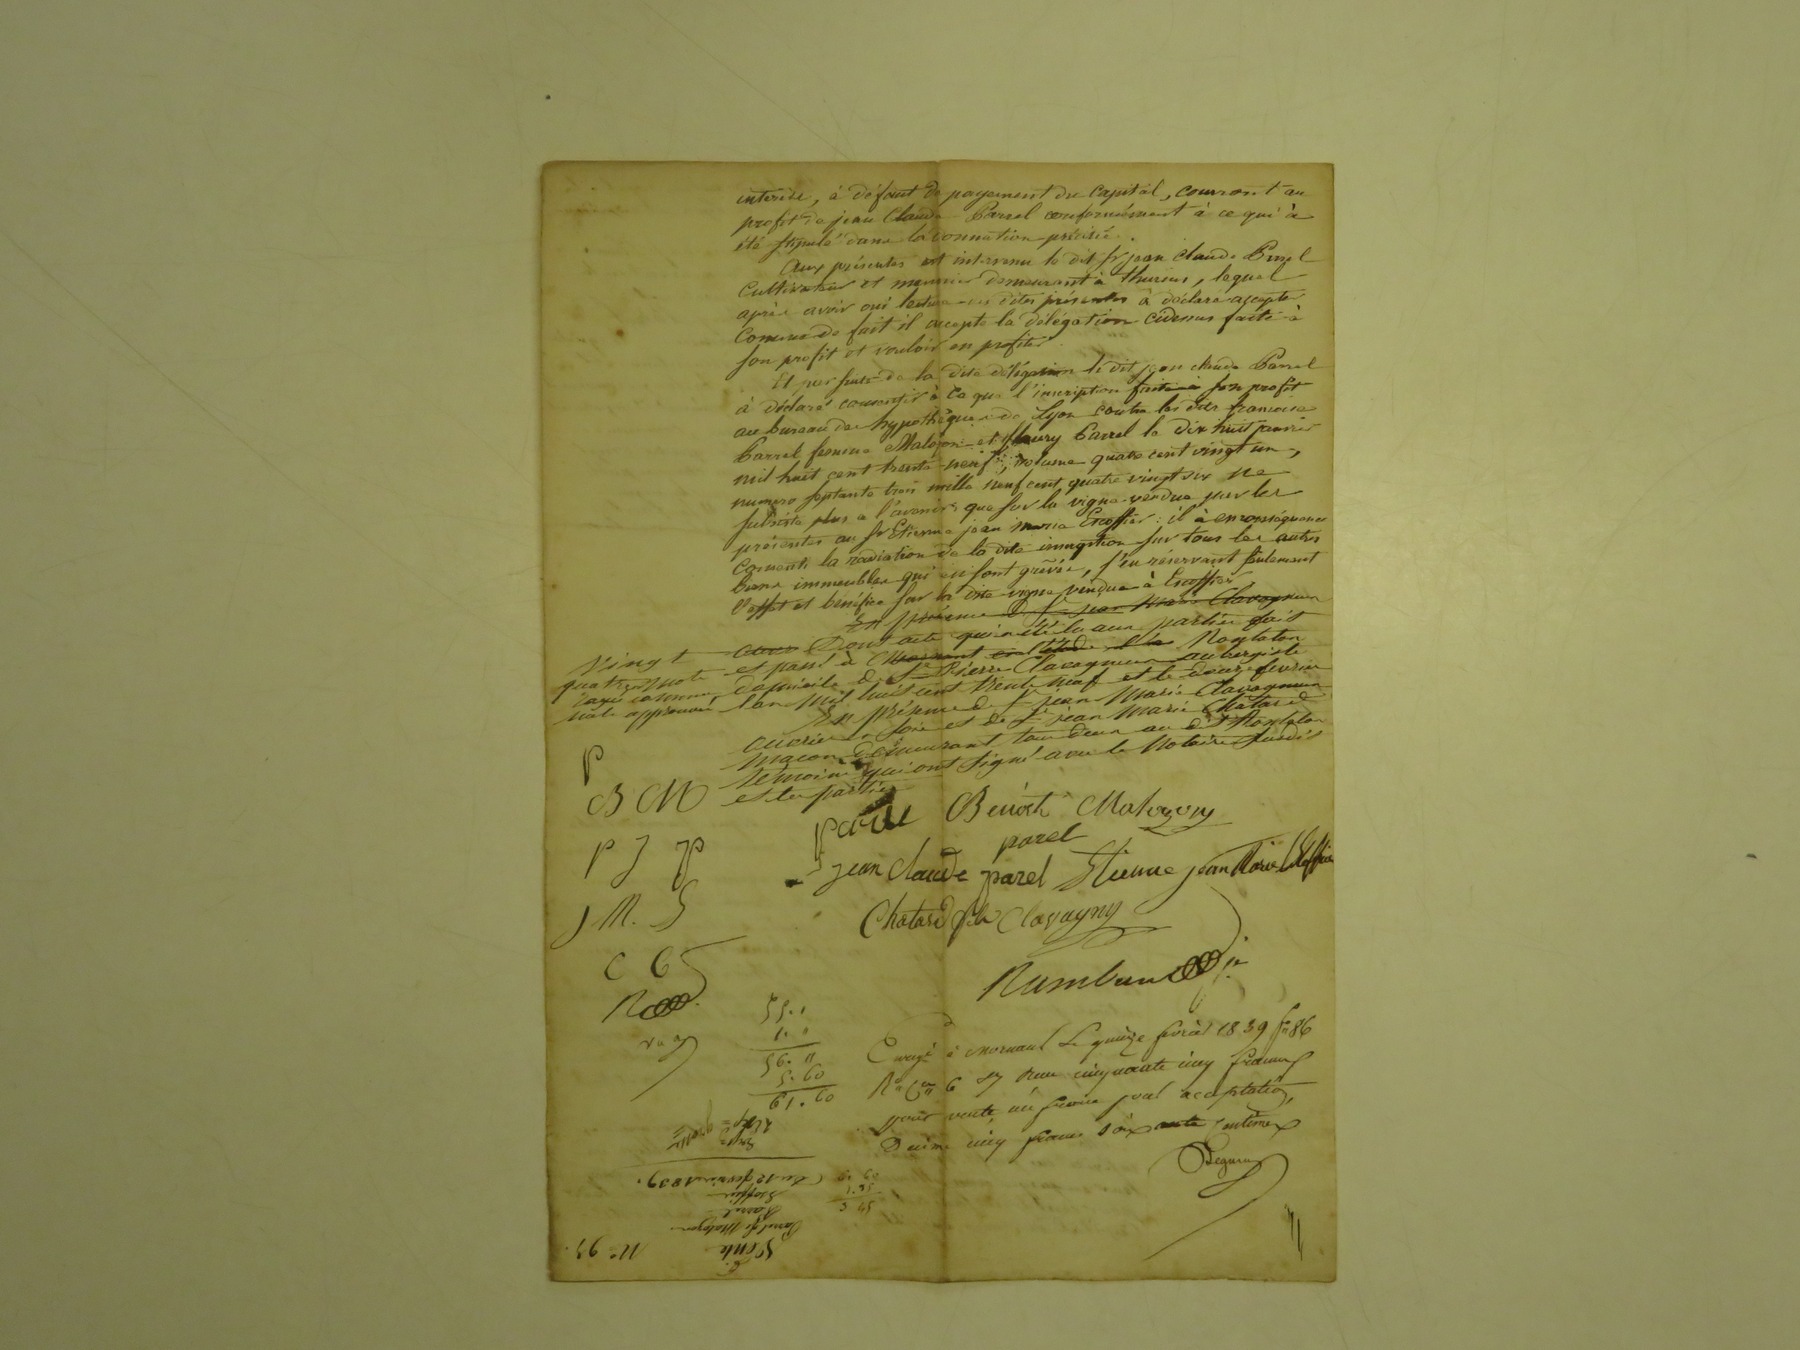 intérêts, à défaut de payement du capital, courront au
profit de jean Claude Parrel conformément à ce qui à
été stipulé dans la donnation précitée.
Aux présentes est intervenu le dit sr jean Claude Parrel
Cultivateur et meunier demeurant à thurins, lequel
après avoir oui lecture des dites présentes à déclaré accepter
Comme de fait il accepte la délégation cidessus faite à
son profit et vouloir en profiter.
Et par suite de la dite délégation le dit jean claude Parrel
à déclaré consentir à ce que l'inscription faite à son profit
au bureau des hypothèques de Lyon contre les dits francoise
Parrel femme Malozon et fleury Parrel le dix huit janvier
mil huit cent trente neuf, volume quatre cent vingt un,
numero septante trois mille neuf cent quatre vingt six ne
subsiste plus à l'avenir que sur la vigne vendue par les
présentes au sr Etienne jean marie Escoffier: il à en conséquence
consenti la radiation de la dite inscription sur tous les autres
biens immeubles qui en sont grévés, s'en réservant seulement
l'effet et bénéfice sur la dite vigne vendue à Escoffier
En présence de sr jean Marie Clavagnieu
Dont acte qui a été lu aux parties fait
et passé à Mornant en l'étude Montaton
domicile de Sr Pierre Clavagnieu aubergiste
l'an mil huit cent trente neuf et le douze fevrier
En présence de sr jean Marie Clavagnieu
ouvrier en soie et de sr jean Marie Chatard
macon demeurant tous deux au dt Montaton
temoins qui ont signé avec le Notaire susdit
et les parties
Vingt
quatre mots
rayés comme
nuls approuvés
P
B M
P J P
J M. E
C C
R
parel Benoit Malozon
parel
jean Claude parel Etienne jean Marie Escoffier
Chatard Clavagny
Enrgé à Mornant le quinze fevrier 1839 fo 86
Ro Cen 6 Reçu cinquante cinq francs
pour vente, un franc pour acceptation,
Decime cinq francs soixante centimes
55.
1.
56.
5.60
61.60
Du 12 fevrier 1839.
Escoffier
Parrel
Parrel fe Malozon
Vente
No 97.